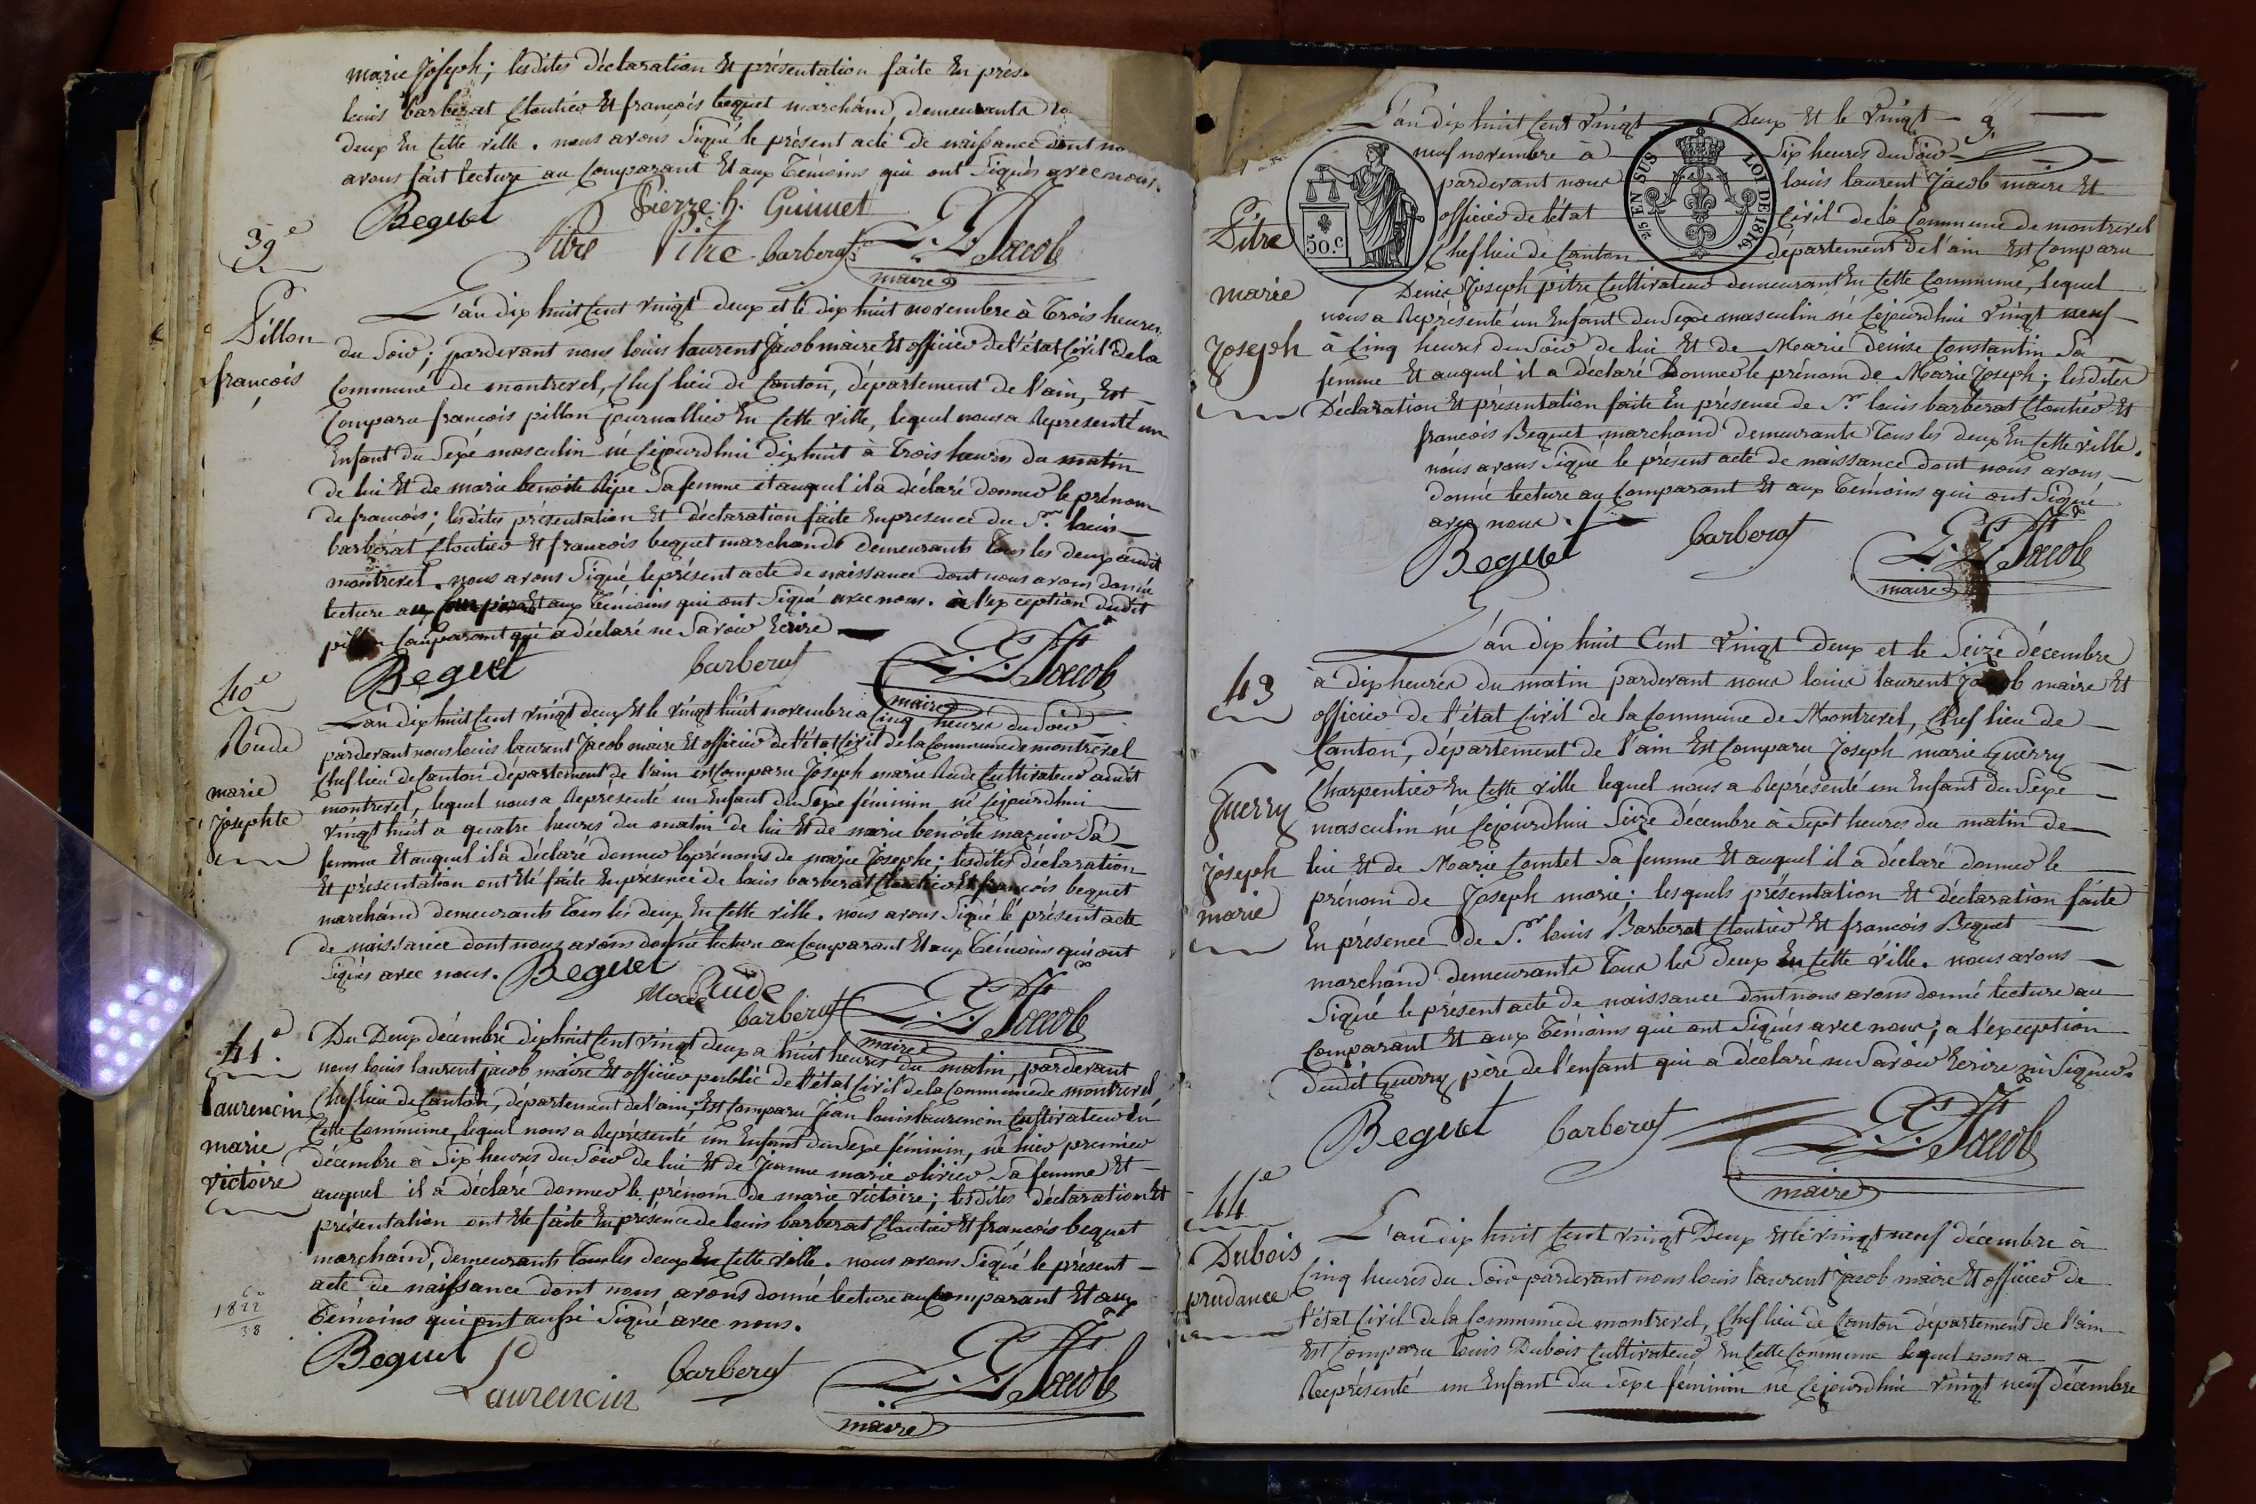 marie Joseph; lesdites déclaration Et présentation faite En prés
louis barberat Cloutier Et françois bequet marchand, demeurants
deux En Cette ville. nous avons Signé le présent acte de naissance dont
avons fait lecture au Comparant Et aux Témoins qui ont Signés avec nous.
Bequet Pierre h. Guimet
Pitre Pitre barberat L. L. Jacob
maire
39e
Pillon
françois
L'an dix huit Cent vingt deux et le dix huit novembre à Trois heures
du Soir; pardevant nous louis laurent Jacob maire Et officier de l'état Civil de la
Commune de montrevel, Chef lieu de Canton, département de l'ain, Est
Comparu françois pillon journallier En Cette ville, lequel nous a Représenté un
Enfant du Sexe masculin né Cejourdhui dix huit à Trois heures du matin
de lui Et de marie benoite Sa femme et auquel il a déclaré donner le prénom
de francois; lesdites présentation Et déclaration faite En presence du Sr. louis
barberat Cloutier Et francois bequet marchand demeurants Tous les deux audit
montrevel. nous avons Signé le présent acte de naissance dont nous avons donné
lecture au Comparant Et aux Témoins qui ont Signé avec nous. à l'exception dudit
pillon Comparant qui a déclaré ne Savoir Ecrire
Bequet barberat L. L. Jacob
maire
40e
Rude
marie
Josephte
L'an dix huit Cent vingt deux Et le vingt huit novembre a Cinq heures du Soir
pardevant nous louis laurent Jacob maire Et officier de l'état Civil de la Commune de montrevel
Chef lieu de Canton département de l'ain est Comparu Joseph marie Rude Cultivateur audit
montrevel, lequel nous a Représenté un Enfant du Sexe féminin né Cejourdhui
vingt huit a quatre heures du matin de lui Et de marie benoite mazuir Sa
femme Et auquel il à déclaré donner le prénoms de marie Josephe; lesdites déclaration
Et présentation ont Eté faite En presence de louis barberat Cloutier Et francois bequet
marchand demeurants Tous les deux En Cette ville. nous avons Signé le présent acte
de naissance dont nous avons donné lecture au Comparant Et aux Témoins qui ont
Signés avec nous. Bequet
Rude barberat L. L. Jacob
maire
41e
Laurencin
marie
victoire
Du Deux décembre dix huit Cent vingt deux a huit heures du matin, pardevant
nous louis laurent jacob maire Et officier public de l'état Civil de la Commune de montrevel
Chef lieu de Canton, département de l'ain, Est Comparu Jean louis laurencin Cultivateur En
Cette Commune, lequel nous a Représenté un Enfant du Sexe féminin, né hier premier
décembre à Six heures du Soir de lui Et de Jeanne marie olivier Sa femme Et
auquel il à déclaré donner le prénom de marie victoire; lesdites déclaration Et
présentation ont Eté faite En présence de louis barberat Cloutier Et francois bequet
marchand, demeurants Tous les deux En Cette ville. nous avons Signé le présent
acte de naissance dont nous avons donné lecture au Comparant Et aux
Témoins qui ont aussi Signé avec nous.
1822
38
Bequet barberat L. L. Jacob
Laurencin
maire
L'an dix huit Cent vingt Deux Et le vingt
neuf novembre à Six heures du Soir
pardevant nous louis laurent Jacob maire Et
officier de l'état Civil de la Commune de montrevel
Chef lieu de Canton département de l'ain Est Comparu
50.C
5/E EN SUS LOI DE 1816.
Pitre
marie
Joseph
Denis Joseph pitre Cultivateur demeurant En Cette Commune, lequel
nous a Représenté un Enfant du Sexe masculin né Cejourdhui vingt neuf
à Cinq heures du Soir de lui Et de Marie denise Constantin Sa
femme Et auquel il a déclaré Donner le prénom de Marie Joseph; lesdites
Déclaration Et présentation faite En présence de Sr. louis barberat Cloutier Et
francois Bequet marchand demeurants Tous les deux En Cette ville.
nous avons Signé le présent acte de naissance dont nous avons
donné lecture au Comparant Et aux Témoins qui ont Signé
avec nous.
Bequet barberat L. L. Jacob
maire
43
Guerry
joseph
marie
L'an dix huit Cent vingt deux et le Seize décembre
à dix heures du matin pardevant nous louis laurent Jacob maire Et
officier de l'état Civil de la Commune de Montrevel, Chef lieu de
Canton, département de l'ain Est Comparu Joseph marie Guerry
Charpentier En Cette ville lequel nous a Représenté un Enfant du Sexe
masculin né Cejourdhui Seize décembre à Sept heures du matin de
lui Et de Marie Comtet Sa femme Et auquel il à déclaré donner le
prénom de Joseph marie; lesquels présentation Et déclaration faite
En présence de Sr. louis Barberat Cloutier Et francois Bequet
marchand demeurants Tous les deux En Cette ville. nous avons
Signé le présent acte de naissance dont nous avons donné lecture au
Comparant Et aux Témoins qui ont Signés avec nous; a l'exception
dudit Guerry père de l'enfant qui a déclaré ne Savoir Ecrire ni Signer.
Bequet barberat L. L. Jacob
maire
44e
Dubois
prudance
L'an dix huit Cent vingt Deux Et le vingt neuf décembre à
Cinq heures du Soir pardevant nous louis laurent Jacob maire Et officier de
l'état Civil de la Commune de montrevel, Chef lieu de Canton département de l'ain
Est Comparu louis Dubois Cultivateur En Cette Commune lequel nous a
Représenté un Enfant du Sexe féminin né Cejourdhui vingt neuf décembre